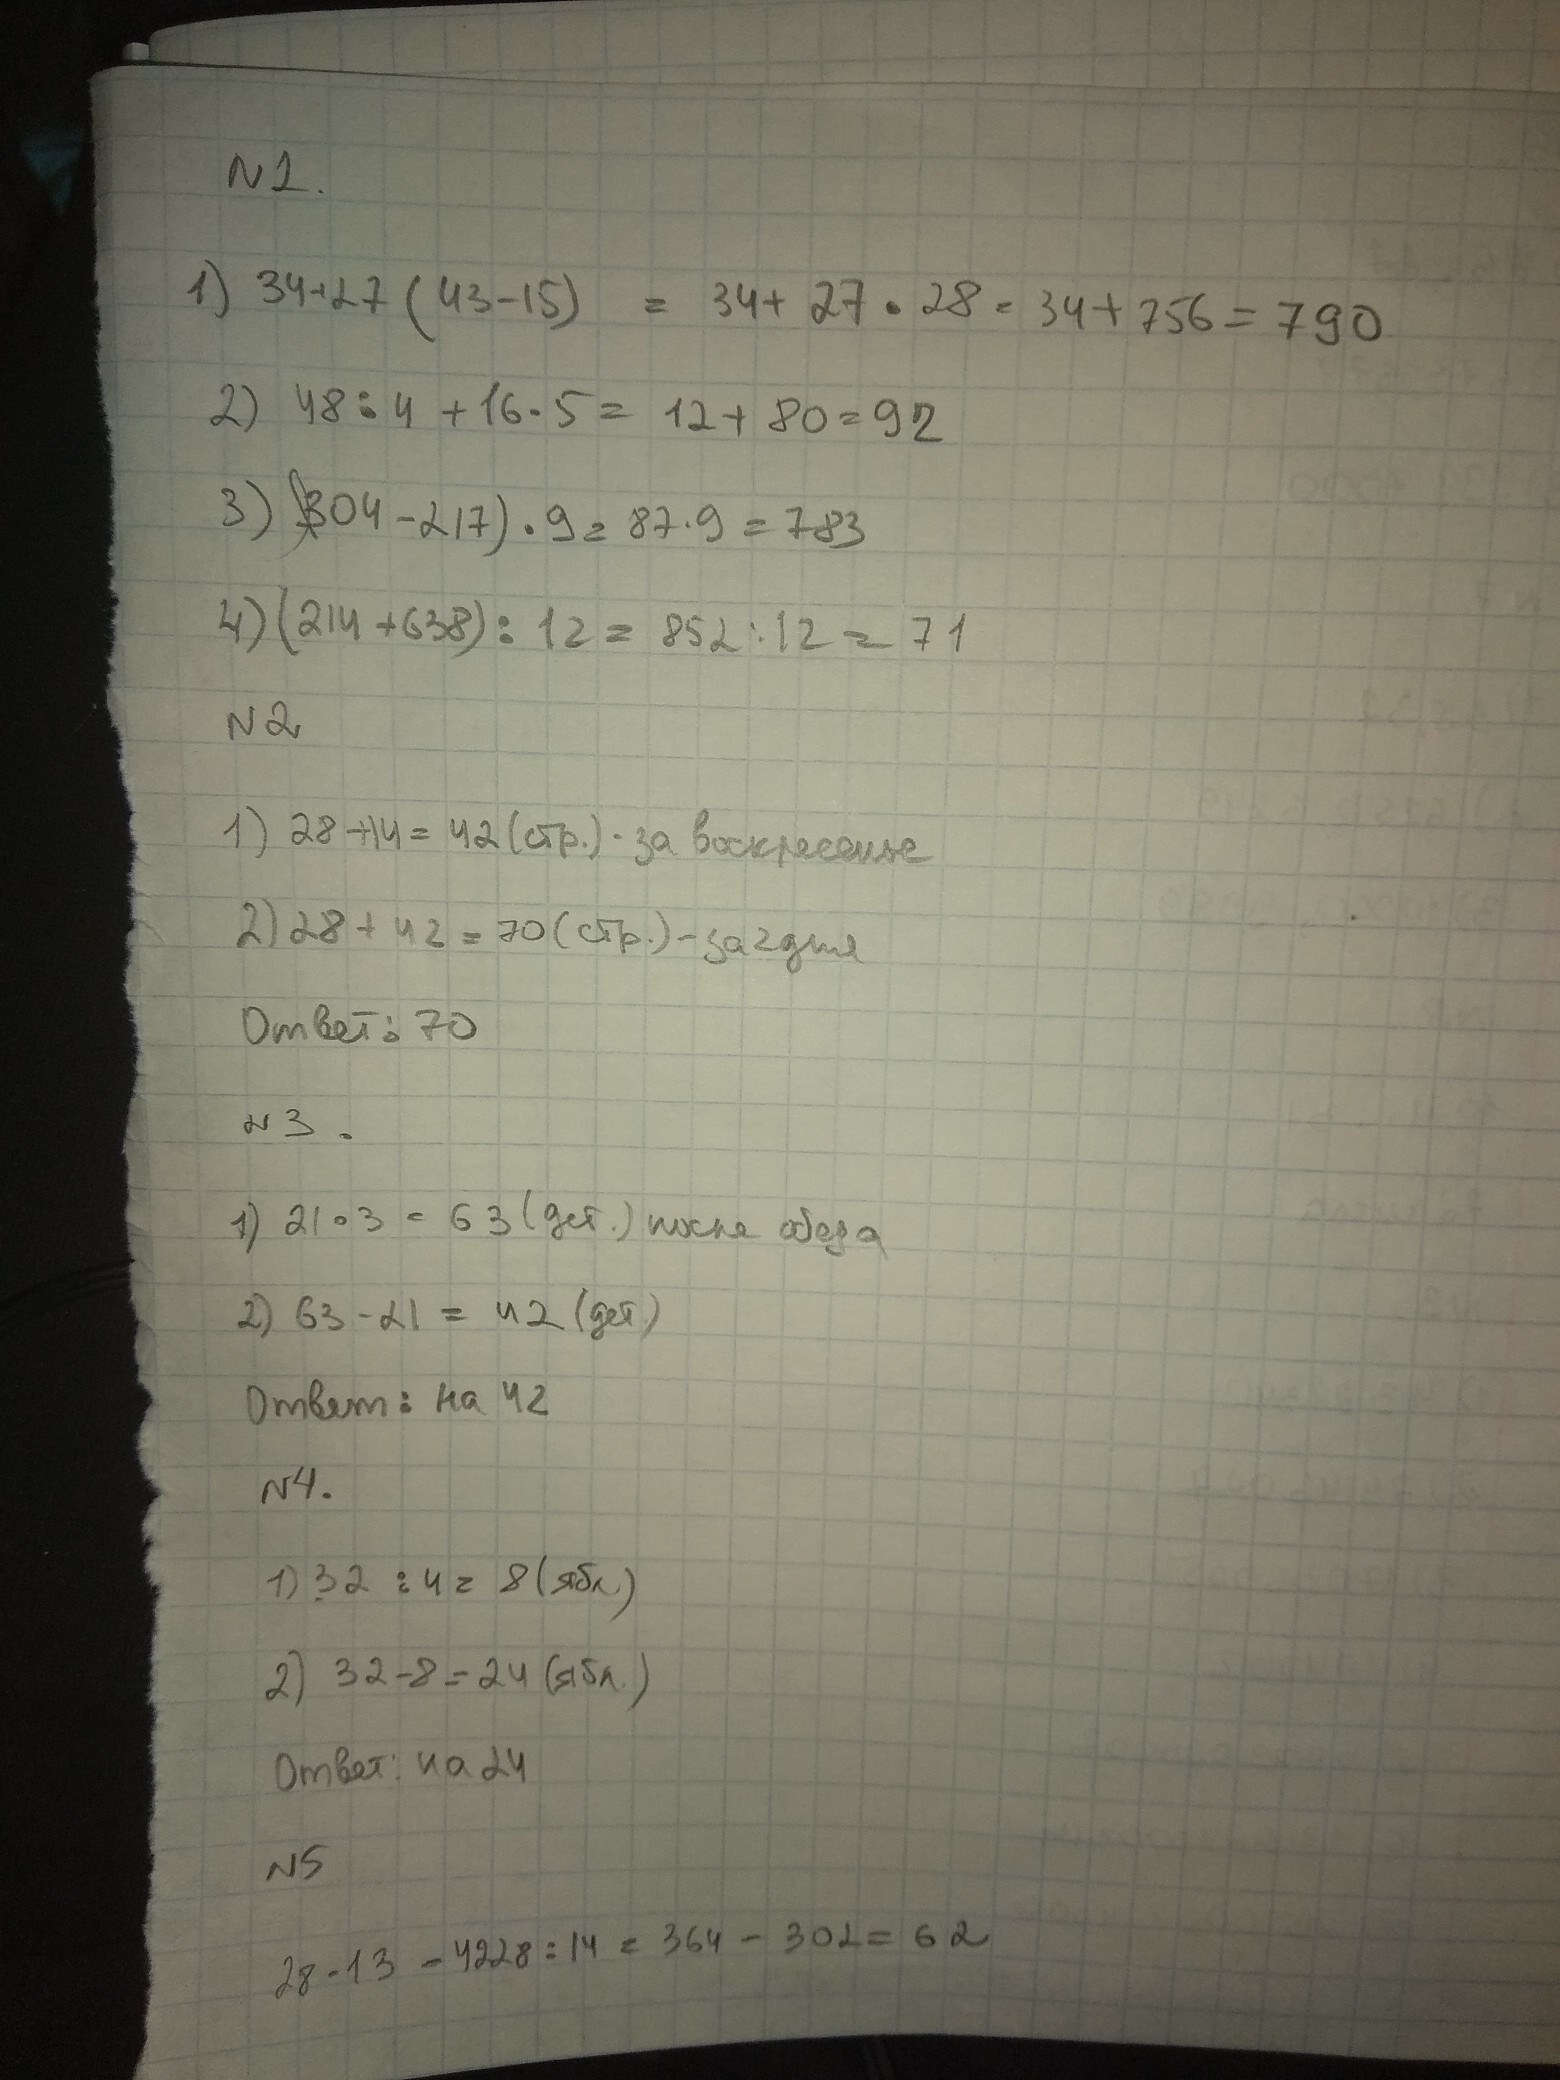 N1.
1) 34+27(43-15) = 34+27·28=34+756=790
2) 48:4+16·5=12+80=92
3) (304-217)·9=87·9=783
4) (214+638):12=852:12=71
N2
1) 28+14=42(стр.)-за воскресенье
2) 28+42=70(стр.)-за 2 дня
Ответ: 70
N3.
1) 21·3=63(дет.) после обеда
2) 63-21=42(дет)
Ответ: на 42
N4.
1) 32:4=8(ябл.)
2) 32-8=24(ябл.)
Ответ: на 24
N5
28·13-4228:14=364-302=62